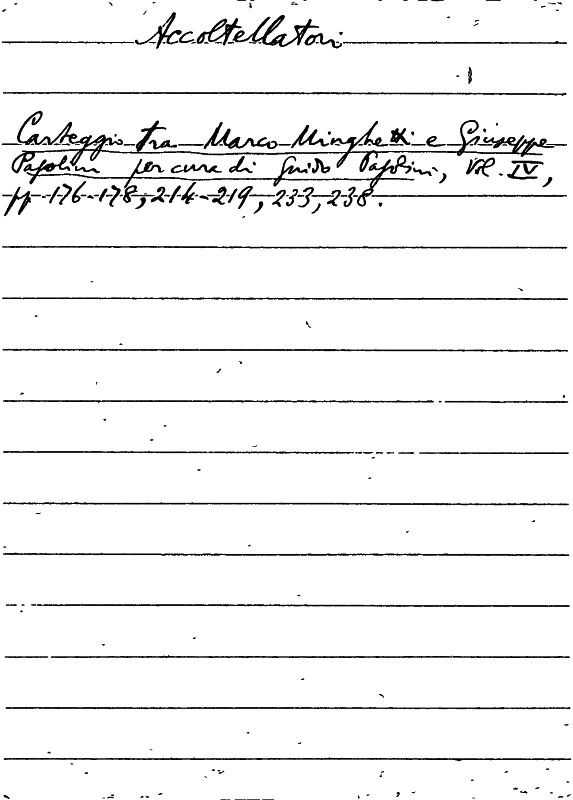 Accoltellatori
Carteggio tra Marco Minghetti e Giuseppe
Pasolini per cura di Guido Pasolini, Vol. IV,
pp 176-178, 214-219, 233, 238.